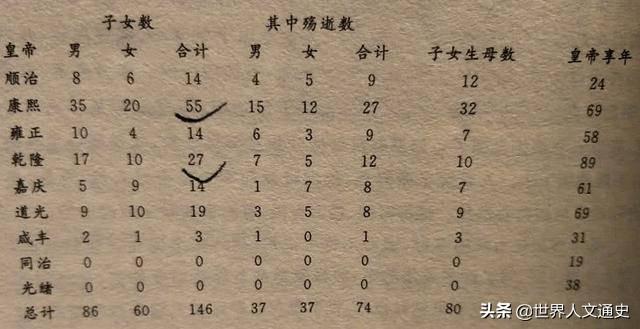 子女数 其中殇逝数
皇帝 男 女 合计 男 女 合计 子女生母数 皇帝享年
顺治 8 6 14 4 5 9 12 24
康熙 35 20 55 15 12 27 32 69
雍正 10 4 14 6 3 9 7 58
乾隆 17 10 27 7 5 12 10 89
嘉庆 5 9 14 1 7 8 7 61
道光 9 10 19 3 5 8 9 69
咸丰 2 1 3 1 0 1 3 31
同治 0 0 0 0 0 0 0 19
光绪 0 0 0 0 0 0 0 38
总计 86 60 146 37 37 74 80
头条 @世界人文通史